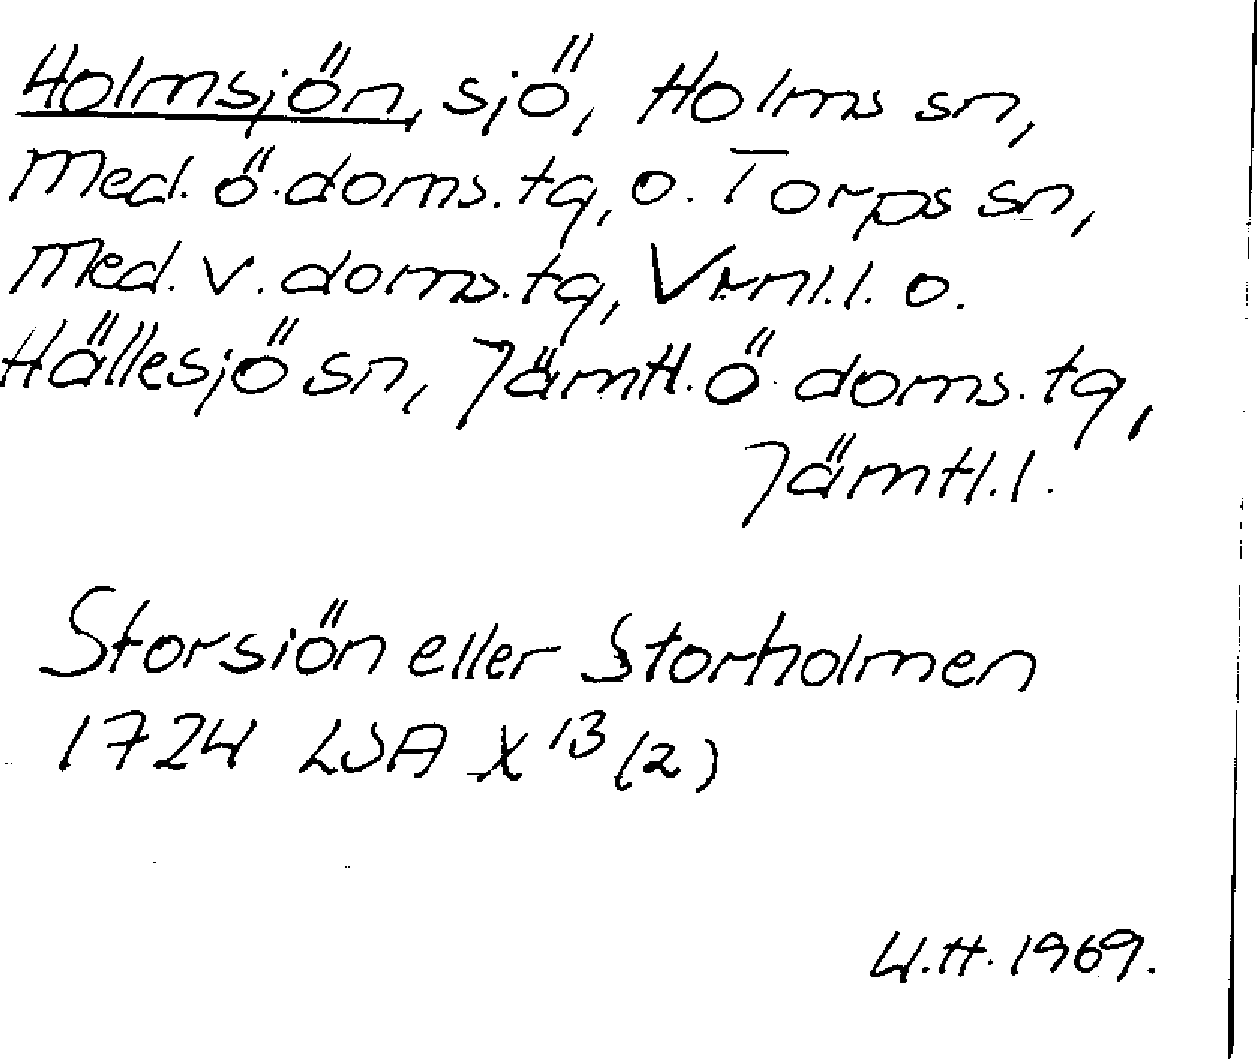 Holmsjön, sjö, Holms sn,
Med. ö. doms. tg, o. Torps sn,
Med. v. doms. tg, Vrnl. l. o.
Hällesjö sn, Jämtl. ö. doms. tg,
Jämtl. l.
Storsiön eller Storholmen
1724 LSA X¹³ (2)
U.H. 1969.